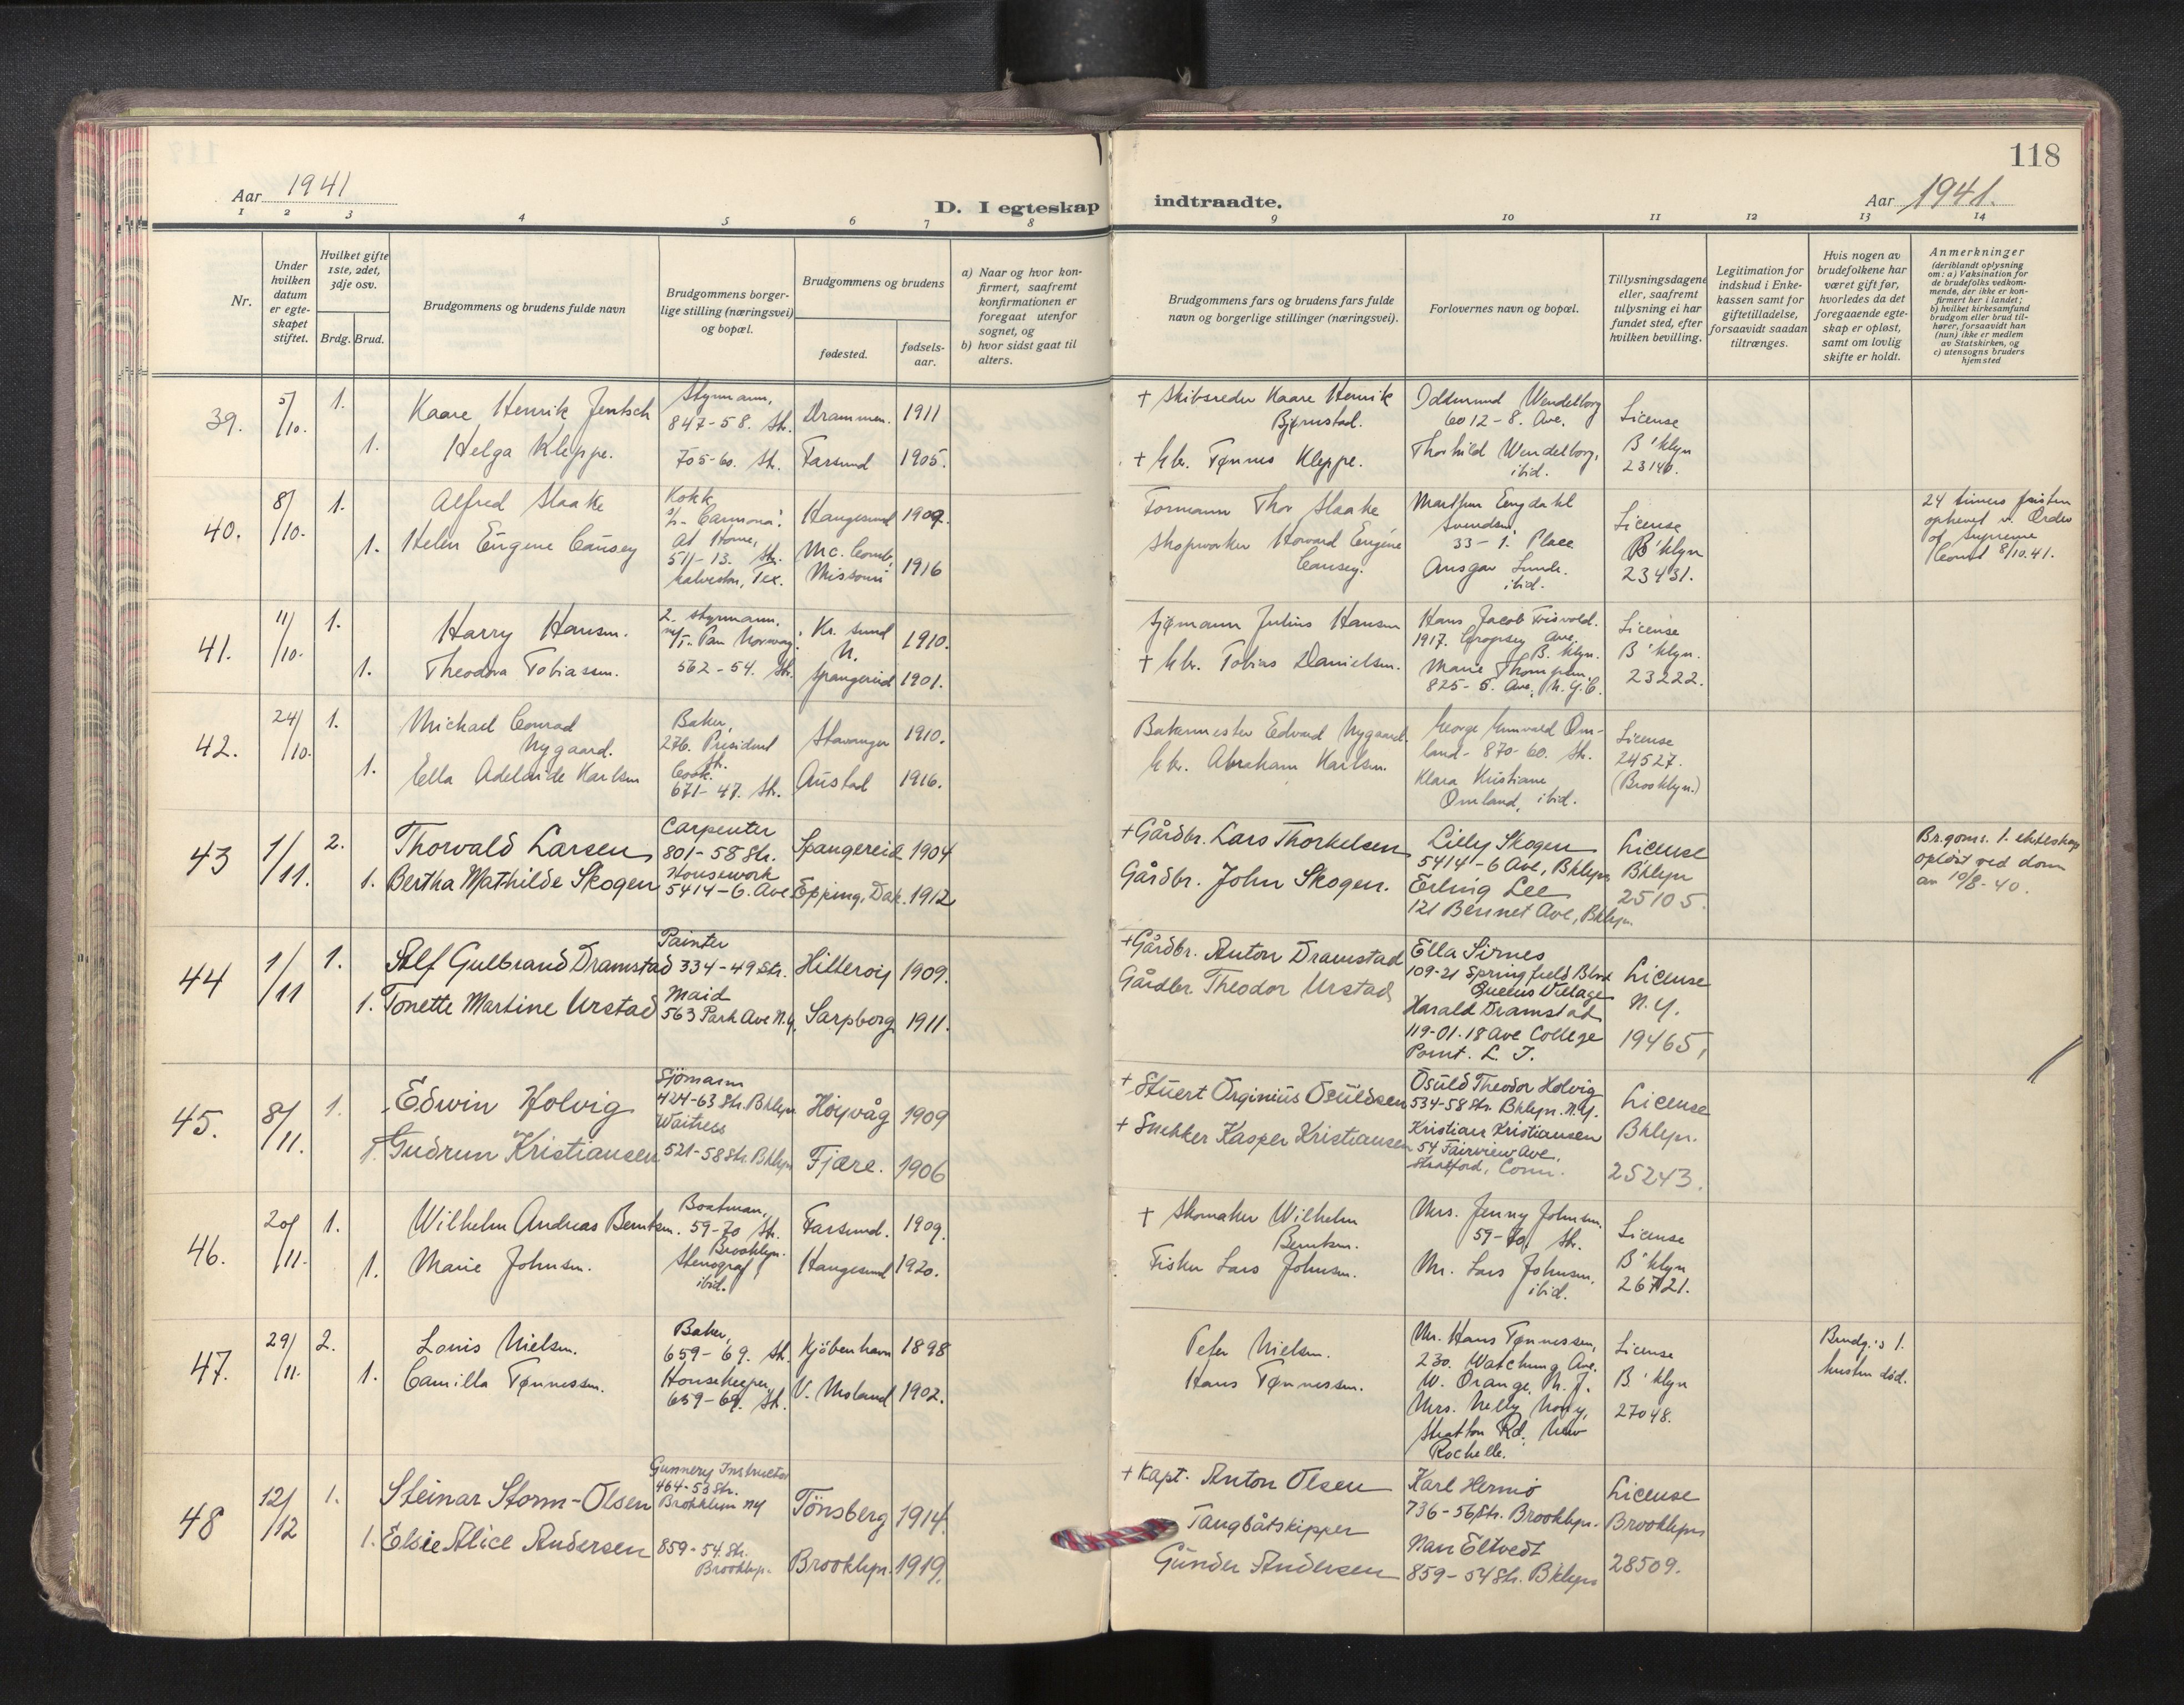 118
Aar 1941
D. I egteskap indtraadte.
Aar 1941.
1 2 3 4 5 6 7 8 9 10 11 12 13 14
Nr.
Under hvilken datum er egte-skapet stiftet.
Hvilket gifte 1ste, 2det, 3dje osv.
Brdg. Brud.
Brudgommens og brudens fulde navn
Brudgommens borger-lige stilling (næringsvei) og bopæl.
Brudgommens og brudens
fødested.
fødsels-aar.
a) Naar og hvor kon-firmert, saafremt konfirmationen er foregaat utenfor sognet, og
b) hvor sidst gaat til alters.
Brudgommens fars og brudens fars fulde navn og borgerlige stillinger (næringsvei).
Forlovernes navn og bopæl.
Tillysningsdagene eller, saafremt tillysning ei har fundet sted, efter hvilken bevilling.
Legitimation for indskud i Enke-kassen samt for giftetilladelse, forsaavidt saadan tiltrænges.
Hvis nogen av brudefolkene har været gift før, hvorledes da det foregaaende egte-skap er opløst, samt om lovlig skifte er holdt.
Anmerkninger
(deriblandt oplysning om: a) Vaksination for de brudefolks vedkom-mende, der ikke er kon-firmert her i landet;
b) hvilket kirkesamfund brudgom eller brud til-hører, forsaavidt han (hun) ikke er medlem av Statskirken, og
c) utensogns bruders hjemsted
39. 5/10. 1. Kaare Henrik Jentsch
Styrmann, 847-58. Str.
Drammen. 1911
+ Skibsreder Kaare Henrik Bjørnstad.
Oddmund Wendelborg 6012-8. Ave.
License B'klyn 23146.
1. Helga Kleppe.
705-60. Str.
Farsund 1905.
+ Gbr. Tønnes Kleppe.
Thorhild Wendelborg, ibid.
40. 8/10. 1. Alfred Slaake
Kokk s/s "Carmona".
Haugesund 1909.
Formann Thor Slaake
Marthin Engdahl Svendsen 33-1. Place
License B'klyn 23431.
24 timers fristen ophevet v. Order of Supreme Court 8/10.41.
1. Helen Eugene Causey
At Home, 511-13. Str. Galveston, Tex.
Mc. Comb, Missouri 1916
Shopworker Howard Eugene Causey.
Ansgar Lunde. ibid.
41. 11/10. 1. Harry Hansen.
2. styrmann. m/T. Pan Norway.
Kr. sund N. 1910.
Sjømann Julius Hansen
Hans Jacob Frisvold. 1917. Cropsey Ave. B.klyn.
License B'klyn. 23222.
1. Theodora Tobiassen.
562-54. Str.
Spangereid 1901.
+ Gbr. Tobias Danielsen.
Marie Thompsen, 825-5. Ave, N.Y.C.
42. 24/10. 1. Michael Conrad Nygaard.
Baker, 276. President Str.
Stavanger 1910.
Bakermester Edvard Nygaard.
George Gunvald Omland - 870-60. Str.
License 24527. (Brooklyn.)
1. Ella Adelaide Karlsen
Cook. 671-47. Str.
Austad 1916.
Gbr. Abraham Karlsen.
Klara Kristiane Omland, ibid.
43 1/11. 2. Thorvald Larsen
Carpenter 801-58 Str.
Spangereid 1904
+ Gårdbr. Lars Thorkelsen
Lilly Skogen 5414-6 Ave, Bklyn
License B'klyn 25105.
Br.goms. 1. ekteskap opløst ved dom av 10/8-40.
1. Bertha Mathilde Skogen
Housework 5414-6. Ave
Epping, Dak. 1912
Gårdbr. John Skogen.
Erling Lee 121 Bennet Ave, Bklyn.
44 1/11 1. Alf Gulbrand Dramstad
Painter 334-49 Str.
Hitterøy 1909.
+ Gårdbr. Anton Dramstad
Ella Sirnes 109-21 Springfield Blvd Queens Village
License N.Y. 19465,
1. Tonette Martine Urstad
Maid 563 Park Ave N.Y.
Sarpborg 1911.
Gårdbr Theodor Urstad
Harald Dramstad 119-01. 18 Ave College Point. L. I.
45. 8/11. 1. Edwin Holvig
Sjömann 424-63 Str. Bklyn
Høyvåg 1909
+ Stuert Orginius Osuldsen
Osuld Theodor Holvig 534-58 Str. Bklyn. N.Y.
License Bklyn. 25243.
1. Gudrun Kristiansen
Waitress 521-58 Str. Bklyn
Fjære. 1906
+ Snekker Kasper Kristiansen
Kristian Kristiansen 54 Fairview Ave, Stratford, Conn.
46. 20/11. 1. Wilhelm Andreas Berntsen.
Boatman, 59-70 Str. Brooklyn.
Farsund. 1909.
+ Skomaker Wilhelm Berntsen.
Mrs. Jenny Johnsen. 59-70. Str.
License B'klyn 26721.
1. Marie Johnsen.
Stenograf, ibid.
Haugesund 1920.
Fisker Lars Johnsen.
Mr. Lars Johnsen, ibid.
47. 29/11. 2. Louis Nielsen.
Baker, 659-69. Str.
Kjöbenhavn 1898
Peter Nielsen.
Mr. Hans Tønnessen, 230. Watchung Ave. W. Orange, N. J.
License B.'klyn 27048.
Brudg.:s 1. hustru död.
1. Camilla Tønnessen.
Housekeeper, 659-69. Str.
V. Nesland 1902.
Hans Tønnessen.
Mrs. Nelly Stratton Rd, New Rochelle.
48 12/12 1. Steinar Storm-Olsen
Gunnery Instructor 464-53 Str. Brooklyn NY
Tönsberg 1914.
+ Kapt. Anton Olsen
Karl Hermö 736-56 Str. Brooklyn.
License Brooklyn 28509.
1. Elsie Alice Andersen
859-54. Str. Brooklyn.
Brooklyn. 1919.
Taugbåtskipper Gunder Andersen
Nan Eltvedt 859-54 Str. B'klyn